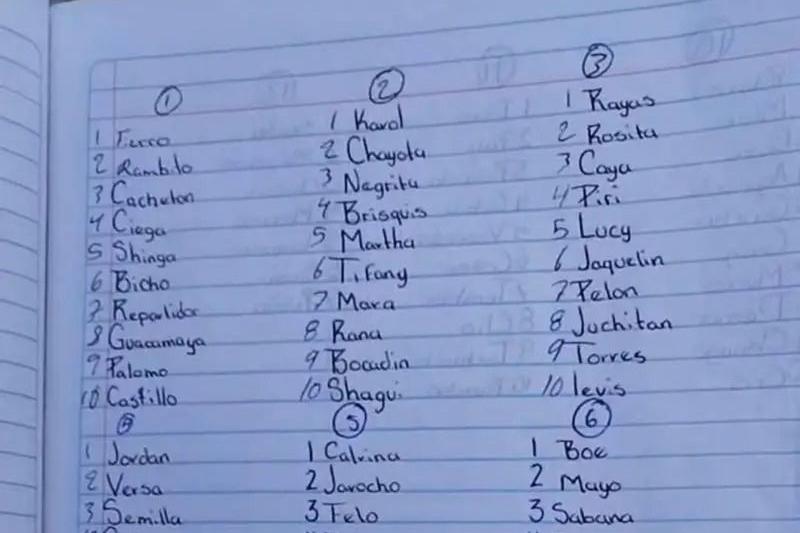 ①
1 Ferro
2 Rambito
3 Cachulon
4 Ciega
5 Shinga
6 Bicho
7 Reparlidor
8 Guacamaya
9 Palomo
10 Castillo
②
1 Karol
2 Chayota
3 Negrita
4 Brisquis
5 Martha
6 Tifany
7 Mara
8 Rana
9 Bocadin
10 Shagui
③
1 Rayas
2 Rosita
3 Caya
4 Piri
5 Lucy
6 Jaquelin
7 Pelon
8 Juchitan
9 Torres
10 levis
④
1 Jordan
2 Versa
3 Semilla
⑤
1 Calvina
2 Jarocho
3 Felo
⑥
1 Boe
2 Mayo
3 Sabana